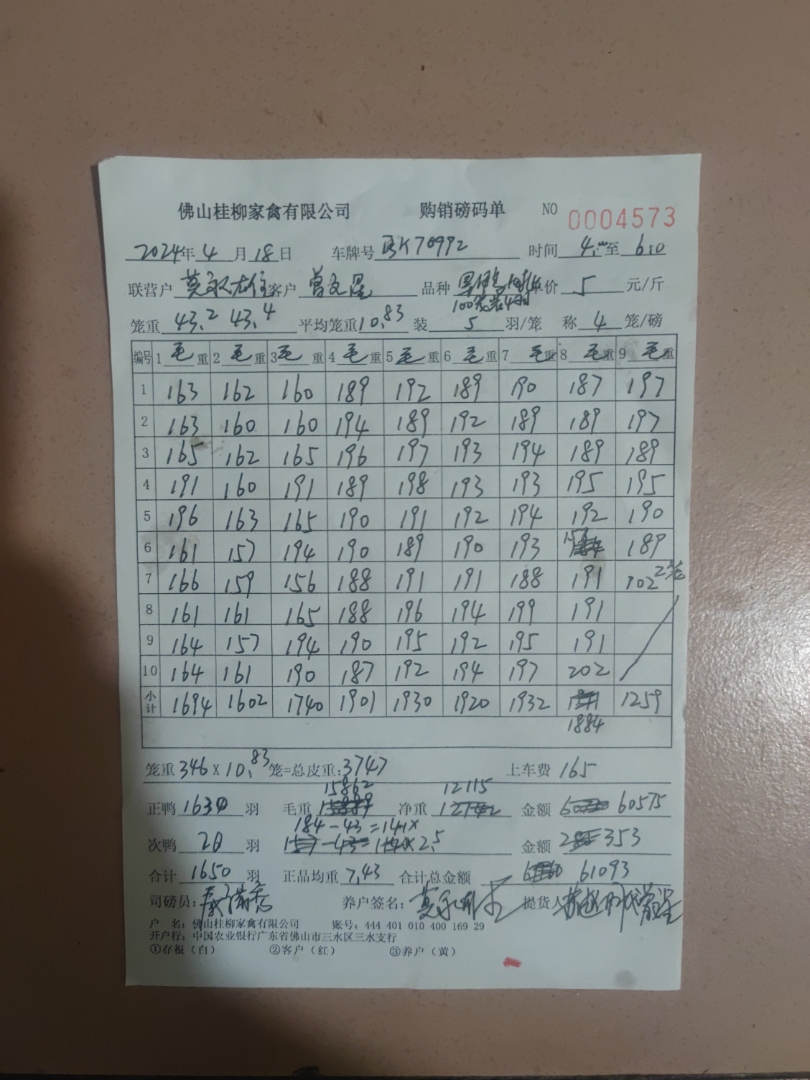 佛山桂柳家禽有限公司 购销磅码单 NO 0004573
2024年4月18日 车牌号 K70992 时间 4:00至6:10
联营户 莫 客户 曾 品种 单价 5 元/斤
笼重 43.2 43.4 平均笼重10.83 装 5 羽/笼 称 4 笼/磅
编号 1毛重 2毛重 3毛重 4毛重 5毛重 6毛重 7毛重 8毛重 9毛重
1 163 162 160 189 192 189 190 187 197
2 163 160 160 194 189 192 189 189 197
3 165 162 165 196 197 193 194 189 189
4 191 160 191 189 198 193 193 195 195
5 196 163 165 190 191 192 194 192 190
6 161 157 194 190 189 190 193 189
7 166 159 156 188 191 191 188 191 102 2笼
8 161 161 165 188 196 194 199 191
9 164 157 194 190 195 192 195 191
10 164 161 190 187 192 194 197 202
小计 1694 1602 1740 1901 1930 1920 1932 1884 1259
笼重346×10.83笼=总皮重:3747 上车费 165
正鸭 1630 羽 毛重 15862 净重 12115 金额 60575
次鸭 20 羽 184-43=141×2.5 金额 353
合计 1650 羽 正品均重 7.43 合计总金额 61093
司磅员: 养户签名: 莫 提货人
户 名: 佛山桂柳家禽有限公司 账号: 444 401 010 400 169 29
开户行: 中国农业银行广东省佛山市三水区三水支行
①存根(白) ②客户(红) ③养户(黄)